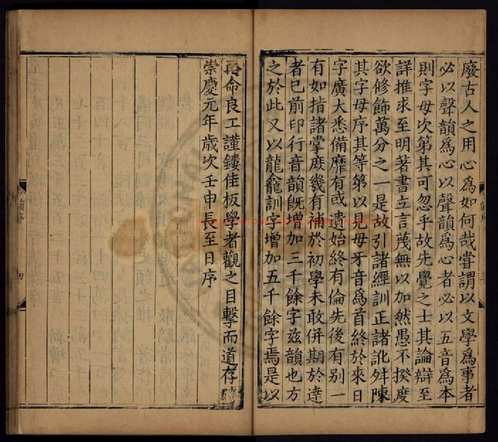 廢古人之用心爲如何哉嘗謂以文學爲事者
必以聲韻爲心以聲韻爲心者必以五音爲本
則字母次第其可忽乎故先覺之士其論辯至
詳推求至明著書立言茂無以加然愚不揆度
欲修飾萬分之一是故引諸經訓正諸訛舛陳
其字母序其等第以見母牙音爲首終於來日
字廣大悉備靡有或遺始終有倫先後有別一
有如指諸掌庶幾有補於初學未敢併期於達
者已前印行音韻旣增加三千餘字茲韻也方
之於此又以龍龕訓字增加五千餘字焉是以
再命良工謹鏤佳板學者觀之目擊而道存
崇慶元年歲次壬申長至日序